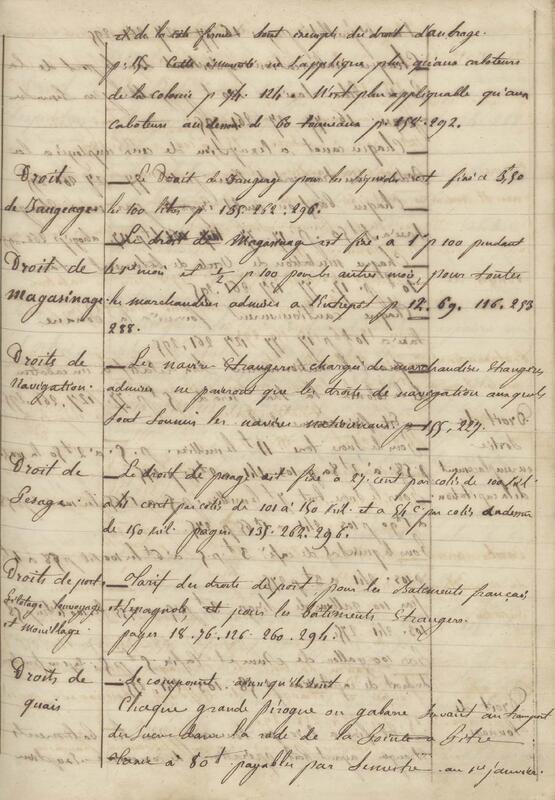 et de la formes sont exempts du droit d'ancrage.
p. 15. Cette ne s'applique plus qu'aux caboteurs
de la colonie p 74. 124. N'est plus applicable qu'aux
caboteurs au dessous de 60 tonneaux p. 158. 292.
Droit de Jaugeage
— Le Droit de Jaugeage pour les liquides est fixé à 3f,50
les 100 litres p. 135. 262. 296.
Droit de magasinage.
— Le droit de Magasinage est fixé à 1 p 100 pendant
le 1er mois et ½ p 100 pour les autres mois, pour toutes
les marchandises admises à l'entrepôt p 12. 69. 116. 253
288.
Droits de navigation.
— Les navires Etrangers chargés de marchandises Etrangères
admises ne paieront que les droits de navigation auxquels
sont soumis les navires nationaux. p 155. 227.
Droit de Pesage.
— Le droit de pesage est fixé à 27 cent par colis de 100 kil
à cent par colis de 101 à 150 kil. et à 54 c par colis au dessus
de 150 kil. pages 135. 262. 296.
Droits de port Pilotage et Mouillage.
— Tarif des droits de port pour les Bâtiments français
et Espagnols et pour les bâtiments Etrangers.
pages 18. 76. 126. 260. 294.
Droits de quais
— Se composent ainsi qu'il suit
Chaque grande Pirogue ou gabare servant au transport
des Sucres dans la rade de la Pointe à Pitre
taxée à 80 f payables par semestre au 1er janvier.